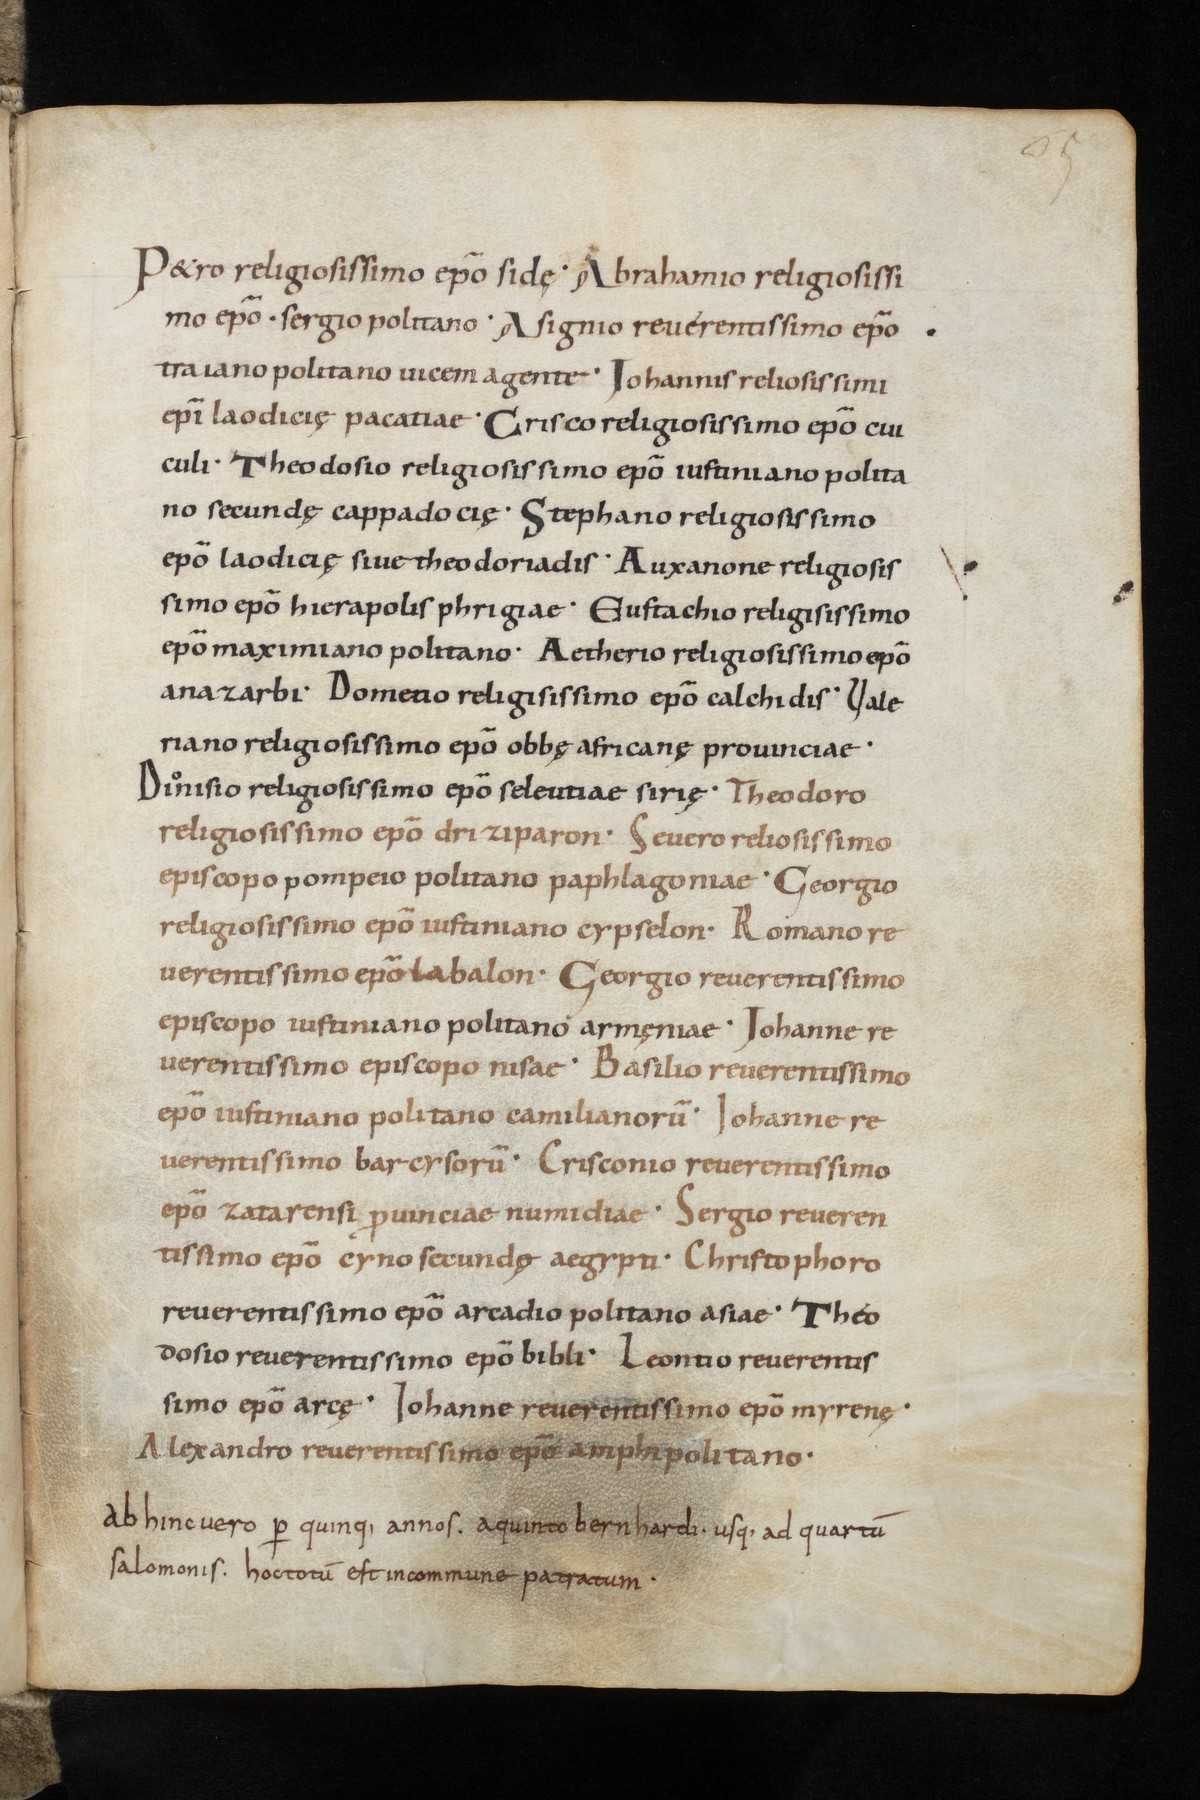 85
P&ro religiosissimo ep̃o sidę· Abrahamio religiosissi
mo ep̃o · sergio politano · Asignio reuerentissimo ep̃o
traiano politano uicem agente · Johannis reliosissimi
ep̃i laodicię pacatiae · Crisco religiosissimo ep̃o cui
culi · Theodosio religiosissimo ep̃o iustiniano polita
no secundę cappadocię · Stephano religiosissimo
ep̃o laodicię siue theodoriadis · Auxanone religiosis
simo ep̃o hierapolis phrigiae · Eustachio religisissimo
ep̃o maximiano politano · Aetherio religiosissimo ep̃o
anazarbi · Dometio religisissimo ep̃o calchidis · Vale
riano religiosissimo ep̃o obbę africanę prouinciae ·
Diͦnisio religiosissimo ep̃o seleutiae sirię · Theodoro
religiosissimo ep̃o driziparon · Seuero reliosissimo
episcopo pompeio politano paphlagoniae · Georgio
religiosissimo ep̃o iustiniano cypselon · Romano re
uerentissimo ep̃o labalon · Georgio reuerentissimo
episcopo iustiniano politano armęniae · Johanne re
uerentissimo episcopo nisae · Basilio reuerentissimo
ep̃o iustiniano politano camilianorū · Johanne re
uerentissimo barcysorū · Crisconio reuerentissimo
ep̃o zatarensi ꝓuinciae numidiae · Sergio reueren
tissimo ep̃o cyno secundę aegypti · Christophoro
reuerentissimo ep̃o arcadio politano asiae · Theo
dosio reuerentissimo ep̃o bibli · Leontio reuerentis
simo ep̃o arcę · Johanne reuerentissimo ep̃o myrenę ·
Alexandro reuerentissimo ep̃o amphipolitano ·
ab hinc uero ꝑ quinq; annos . a quinto bernhardi . usq; ad quartū
salomonis . hoc totū est in commune patratum ·